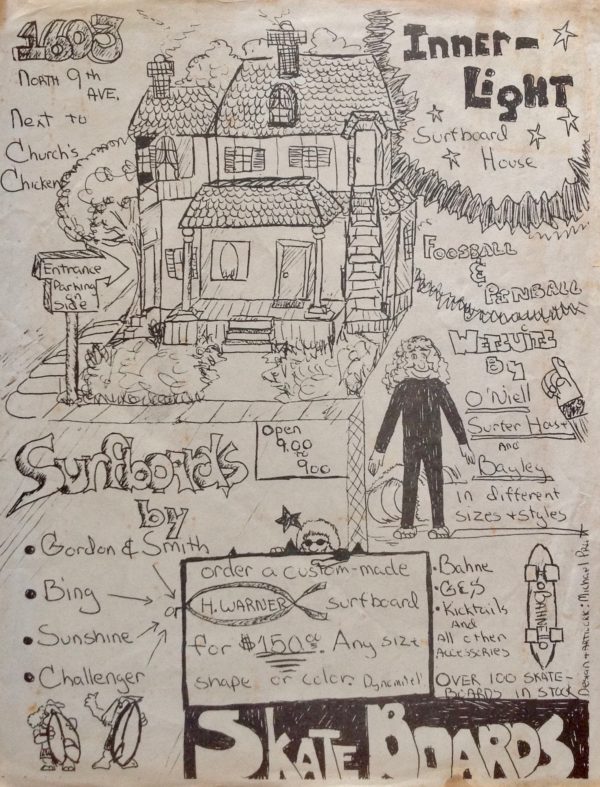 1603
North 9th
Ave.
Next to
Church's
Chicken
Inner-
Light
Surfboard
House
Entrance
Parking
on
Side
Foosball
&
Pinball
Wetsuits
By
O'Niell
Surfer House
and
Bayley
in different
sizes + styles
Open
9:00
to
9:00
Surfboards
by
• Gordon & Smith
• Bing
• Sunshine
• Challenger
or
order a custom-made
H. Warner surfboard
for $150.00. Any size
shape or color. Dynomite!
• Bahne
• G&S
• Kicktails
And
All other
Accesseries
Bahne
Over 100 skate-
boards in stock
Design + Artwork: Michael
Skate Boards